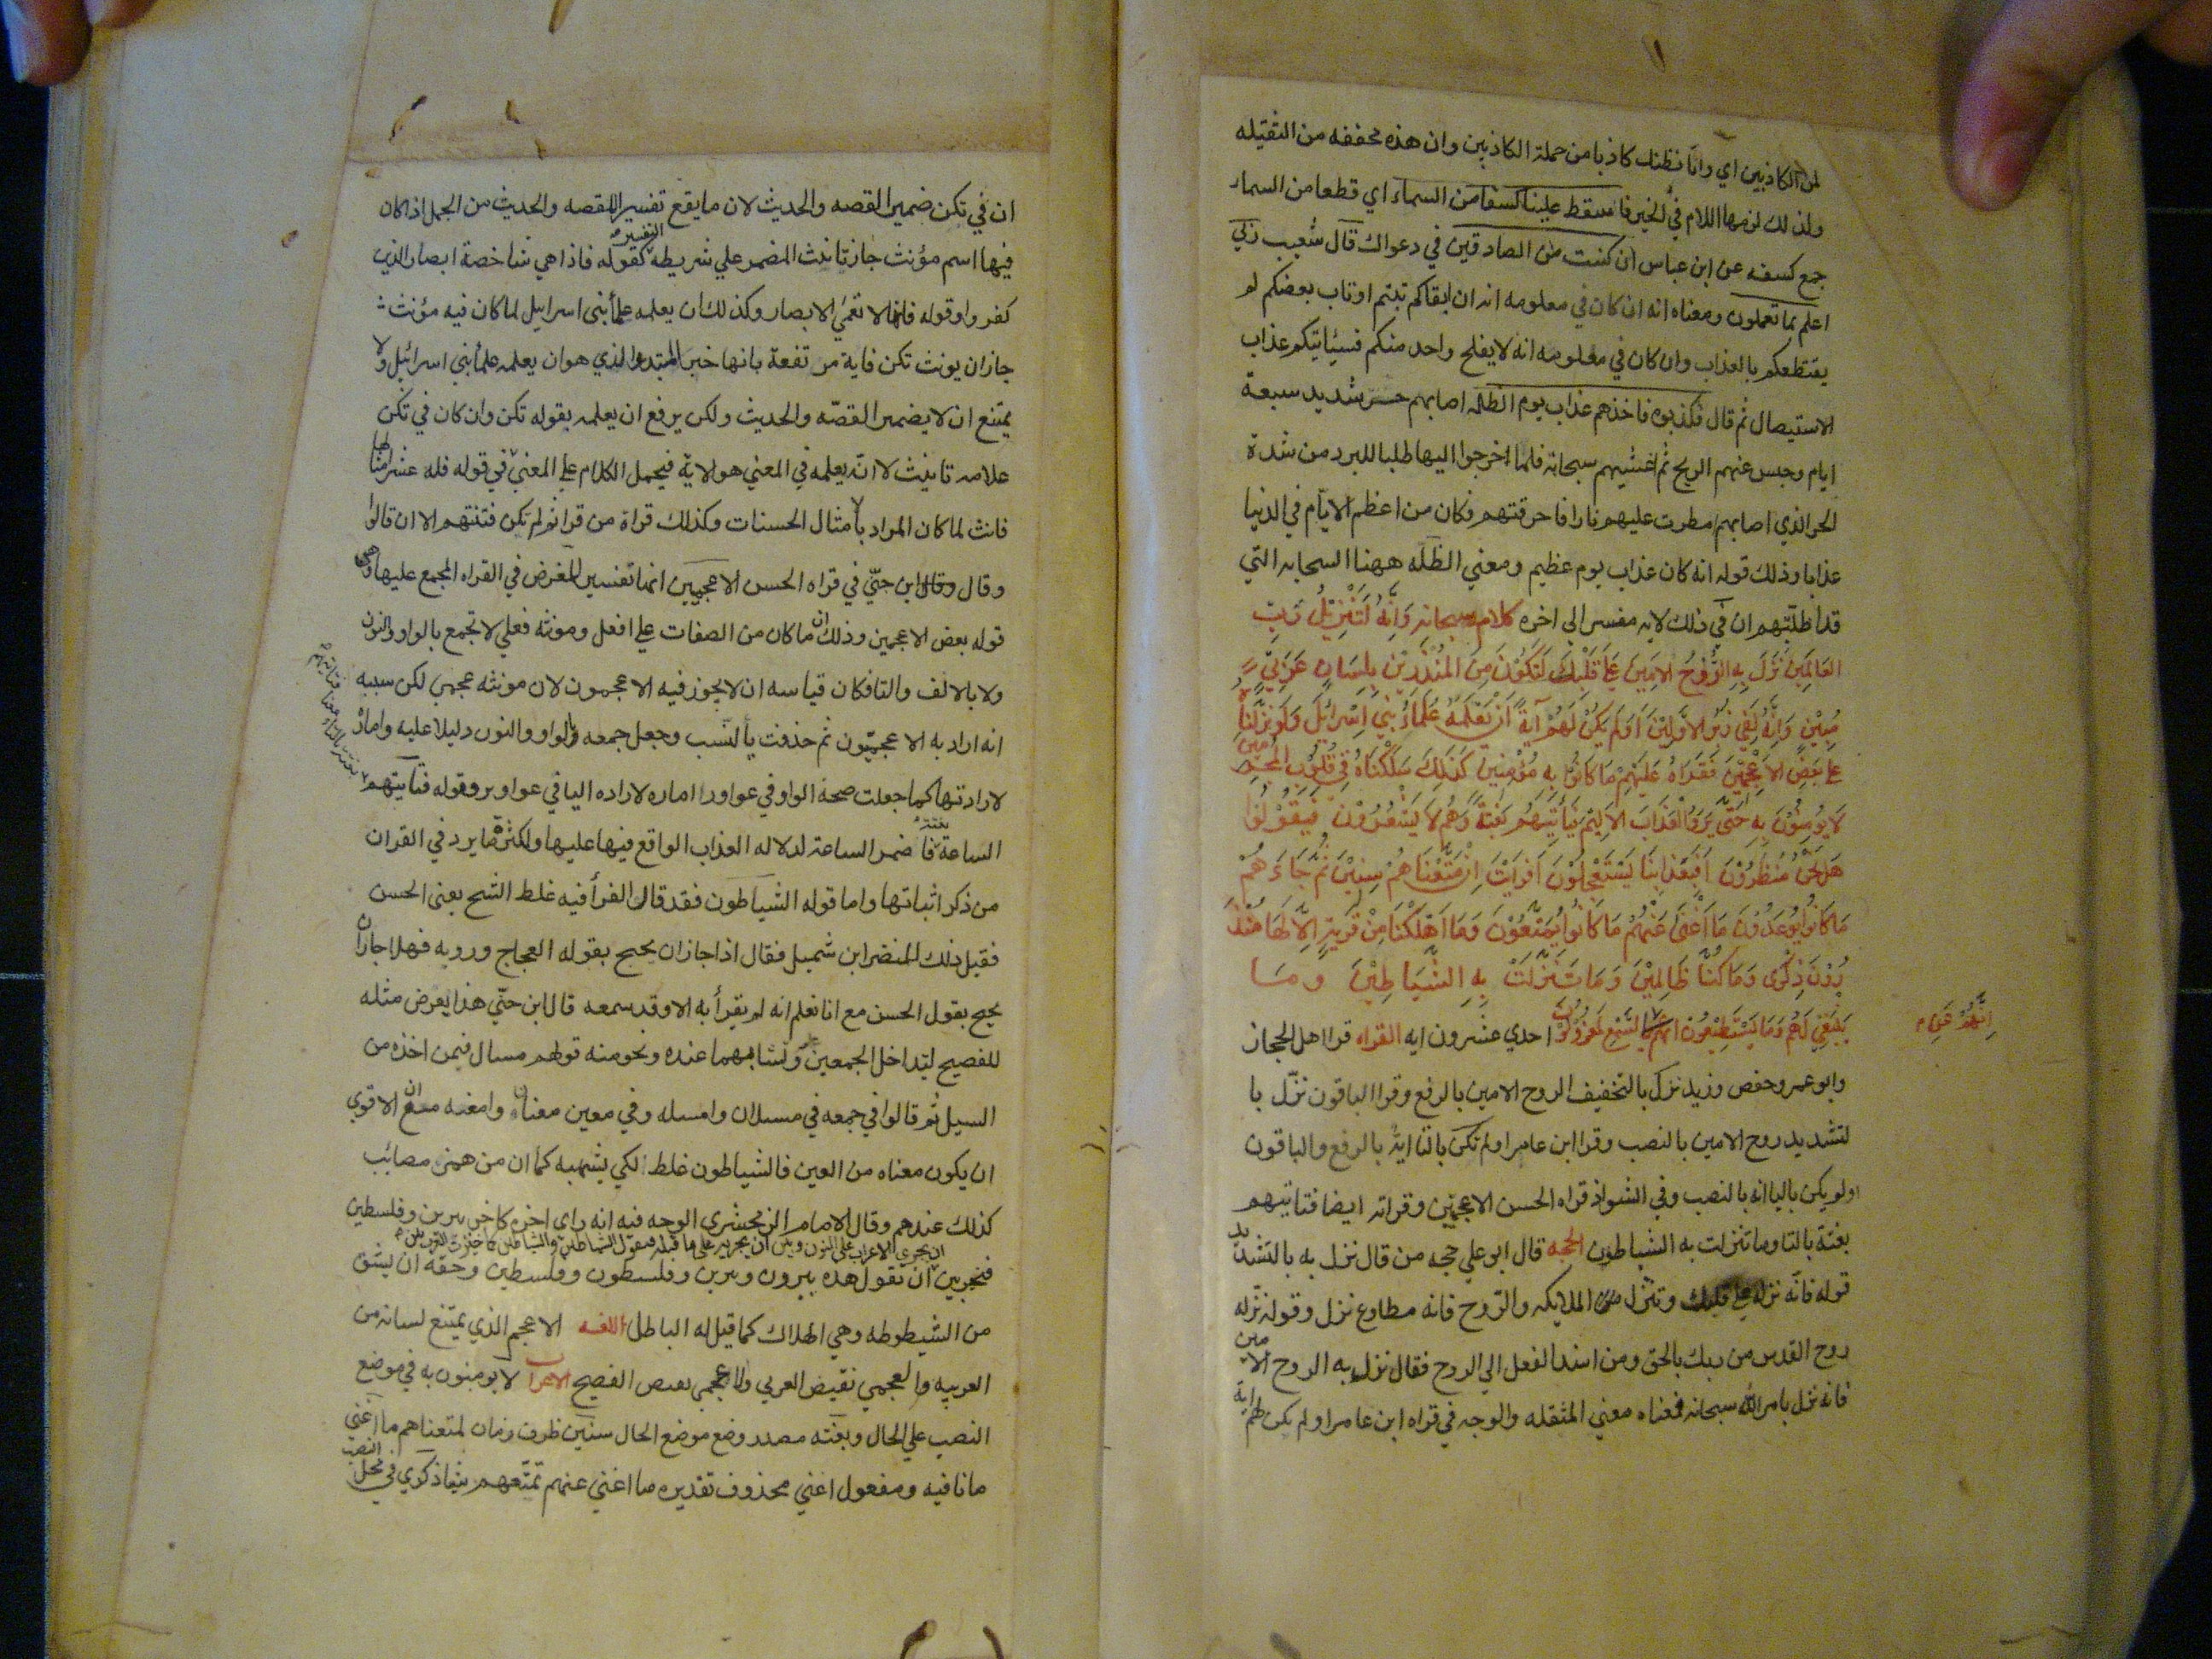 لمن الكاذبين اي وانا نظنك كاذبا من جملة الكاذبين وان هذه مخففه من الثقيله
ولذلك لزمها اللام في الخبر فاسقط علينا كسفا من السماء اي قطعا من السماء
جمع كسفه عن ابن عباس ان كنت من الصادقين في دعواك قال شعيب ربي
اعلم بما تعملون ومعناه انه ان كان في معلومه انه ان ابقاكم تبتم او تاب بعضكم لم
يقتطعكم بالعذاب وان كان في معلومه انه لا يفلح واحد منكم فسيأتيكم عذاب
الاستيصال ثم قال فكذبوه فاخذهم عذاب يوم الظله اصابهم حر شديد سبعة
ايام وحبس عنهم الريح ثم غشيهم سحابة فلما خرجوا اليها طلبا للبرد من شدة
الحر الذي اصابهم امطرت عليهم نارا فاحرقتهم فكان من اعظم الايام في الدنيا
عذابا وذلك قوله انه كان عذاب يوم عظيم ومعني الظله ههنا السحابه التي
قد اظلتهم ان في ذلك لايه مفسر الى اخره كلام سبحانه وَاِنَّهُ لَتَنْزِيلُ رَبِّ
العَالَمِينَ نَزَلَ بِهِ الرُّوحُ الاَمِينُ عَلَى قَلْبِكَ لِتَكُونَ مِنَ المُنْذِرِيْنَ بِلِسَانٍ عَرَبِيٍّ
مُبِيْنٍ وَاِنَّهُ لَفِي زُبُرِ الاَوَّلِيْنَ اَوَلَمْ يَكُنْ لَهُمْ آيَةً اَنْ يَعْلَمَهُ عُلَمَاءُ بَنِي اِسْرَائِيلَ وَلَوْ نَزَّلْنَاهُ
عَلَى بَعْضِ الاَعْجَمِيْنَ فَقَرَاَهُ عَلَيْهِمْ مَا كَانُوا بِهِ مُؤْمِنِينَ كَذَلِكَ سَلَكْنَاهُ فِي قُلُوبِ المُجْرِمين
لَا يُؤْمِنُوْنَ بِهِ حَتَّى يَرَوُا الْعَذَابَ الاَلِيْمَ فَيَأْتِيَهُمْ بَغْتَةً وَهُمْ لَا يَشْعُرُوْنَ فَيَقُوْلُوْا
هَلْ نَحْنُ مُنْظَرُوْنَ اَفَبِعَذَابِنَا يَسْتَعْجِلُوْنَ اَفَرَاَيْتَ اِنْ مَتَّعْنَاهُمْ سِنِيْنَ ثُمَّ جَاءَهُمْ
مَا كَانُوا يُوعَدُوْنَ مَا اَغْنَى عَنْهُمْ مَا كَانُوا يُمَتَّعُوْنَ وَمَا اَهْلَكْنَا مِنْ قَرْيَةٍ اِلَّا لَهَا مُنْذِ
رُوْنَ ذِكْرَى وَمَا كُنَّا ظَالِمِيْنَ وَمَا تَنَزَّلَتْ بِهِ الشَّيَاطِيْنُ وَمَا
يَنْبَغِي لَهُمْ وَمَا يَسْتَطِيْعُونَ اِنَّهُمْ عَنِ السَّمْعِ لَمَعْزُولُونَ احدي عشرون ايه القراه قرا اهل الحجاز
اِنَّهُمْ عَنِ
وابو عمر وحفص وزيد نزل بالتخفيف الروح الامين بالرفع وقرا الباقون نزّل با
لتشديد روح الامين بالنصب وقرا ابن عامر اولم تكن بالتا ايةٌ بالرفع والباقون
اولم يكن باليا ايه بالنصب وفي الشواذ قراه الحسن الاعجميّين وقراته ايضا فتاتيهم
بغتة بالتا وما تنزلت به الشياطون الحجه قال ابو علي حجه من قال نزل به بالتشديد
قوله فانه نزله علي قلبك وتنزل الملايكه والروح فانه مطاوع نزل وقوله نزله
روح القدس من ربك بالحق ومن اسند الفعل الي الروح فقال نزل به الروح الامين
فانه نزل بامر الله سبحانه فمعناه معني المثقله والوجه في قراه ابن عامر اولم يكن لهم اية
ان في تكن ضمير القصه والحديث لان ما يقع تفسير اللقصه والحديث من الجمل اذا كان
فيها اسم مؤنث جاز تانيث المضمر علي شريطه التفسير كقوله فاذا هي شاخصة ابصار الذين
كفروا وقوله فانها لا تعمى الابصار وكذلك ان يعلمه علمأ بنى اسرايل لما كان فيه مؤنث
جاز ان يونث تكن فاية مرتفعة بانها خبر المبتدا الذي هو ان يعلمه علمأ بني اسرائيل ولا
يمتنع ان لا يضمر القصّه والحديث ولكن يرفع ان يعلمه بقوله تكن وان كان في تكن
علامه تانيث لانه يعلمه في المعني هو لاية فيحمل الكلام علي المعني في قوله فله عشر امثالها
فانث لما كان المراد بالامثال الحسنات وكذلك قراة من قرا ثم لم تكن فتنتهم الا ان قالوا
وقال ابن جنّي في قراه الحسن الاعجميين انما تفسير للغرض في القراه المجمع عليها وهي
قوله بعض الاعجمين وذلك ان ما كان من الصفات علي افعل ومونثه فعلي لا تجمع بالواو والنون
ولا بالالف والتا فكان قياسه ان لا يجوز فيه الاعجمون لان مونثه عجمي لكن سببه
انه اراد به الاعجميّون ثم حذفت يا النسب وجعل جمعه بالواو والنون دليلا عليه وامارة
لارادتها كما جعلت صحة الواو في عواور اماره لاراده اليا في عواوير وقوله فتاتيهم
الساعة بغتة فاضمر الساعة لدلاله العذاب الواقع فيها عليها ولكثرة ما يرد في القران
من ذكر اتيانها واما قوله الشياطون فقد قال الفرأ فيه غلط الشيخ يعنى الحسن
فقيل ذلك للنضر ابن شميل فقال اذا جاز ان يحتج بقوله العجاج ورويه فهلا جاز ان
يحتج بقول الحسن مع انا نعلم انه لم يقرأ به الا وقد سمعه قال ابن جنّي هذا يعرض مثله
للفصيح لتداخل الجمعين وتشابههما عنده ونحو منه قولهم مسال فيمن اخذه من
السيل ثم قالوا في جمعه في مسلان وامسله وفي معين معنان وامعنه مع ان الاقوي
ان يكون معناه من العين فالشياطون غلط لكي يشبهه كما ان من همز مصائب
كذلك عندهم وقال الامام الزمخشري الوجه فيه انه راي اخره كاخر يبرين وفلسطين
فتخير بين ان يجري الاعراب علي النون وبين ان يجريه علي ما قبله فيقول الشياطين والشياطون كما تخيرت العرب بين
ان تقول هذه يبرون ويبرين وفلسطون وفلسطين وحقه ان يشتق
من الشيطوطه وهي الهلاك كما قيل له الباطل اللغه الاعجم الذي يمتنع لسانه من
العربيه والعجمي نقيض العربي والاعجمي نقيض الفصيح الاعراب لا يومنون به في موضع
النصب علي الحال وبغته مصدر وضع موضع الحال سنين ظرف زمان لمتعناهم ما اغني
ما نافيه ومفعول اغني محذوف تقديره ما اغني عنهم تمتّعهم شيئا ذكري في محل النصب